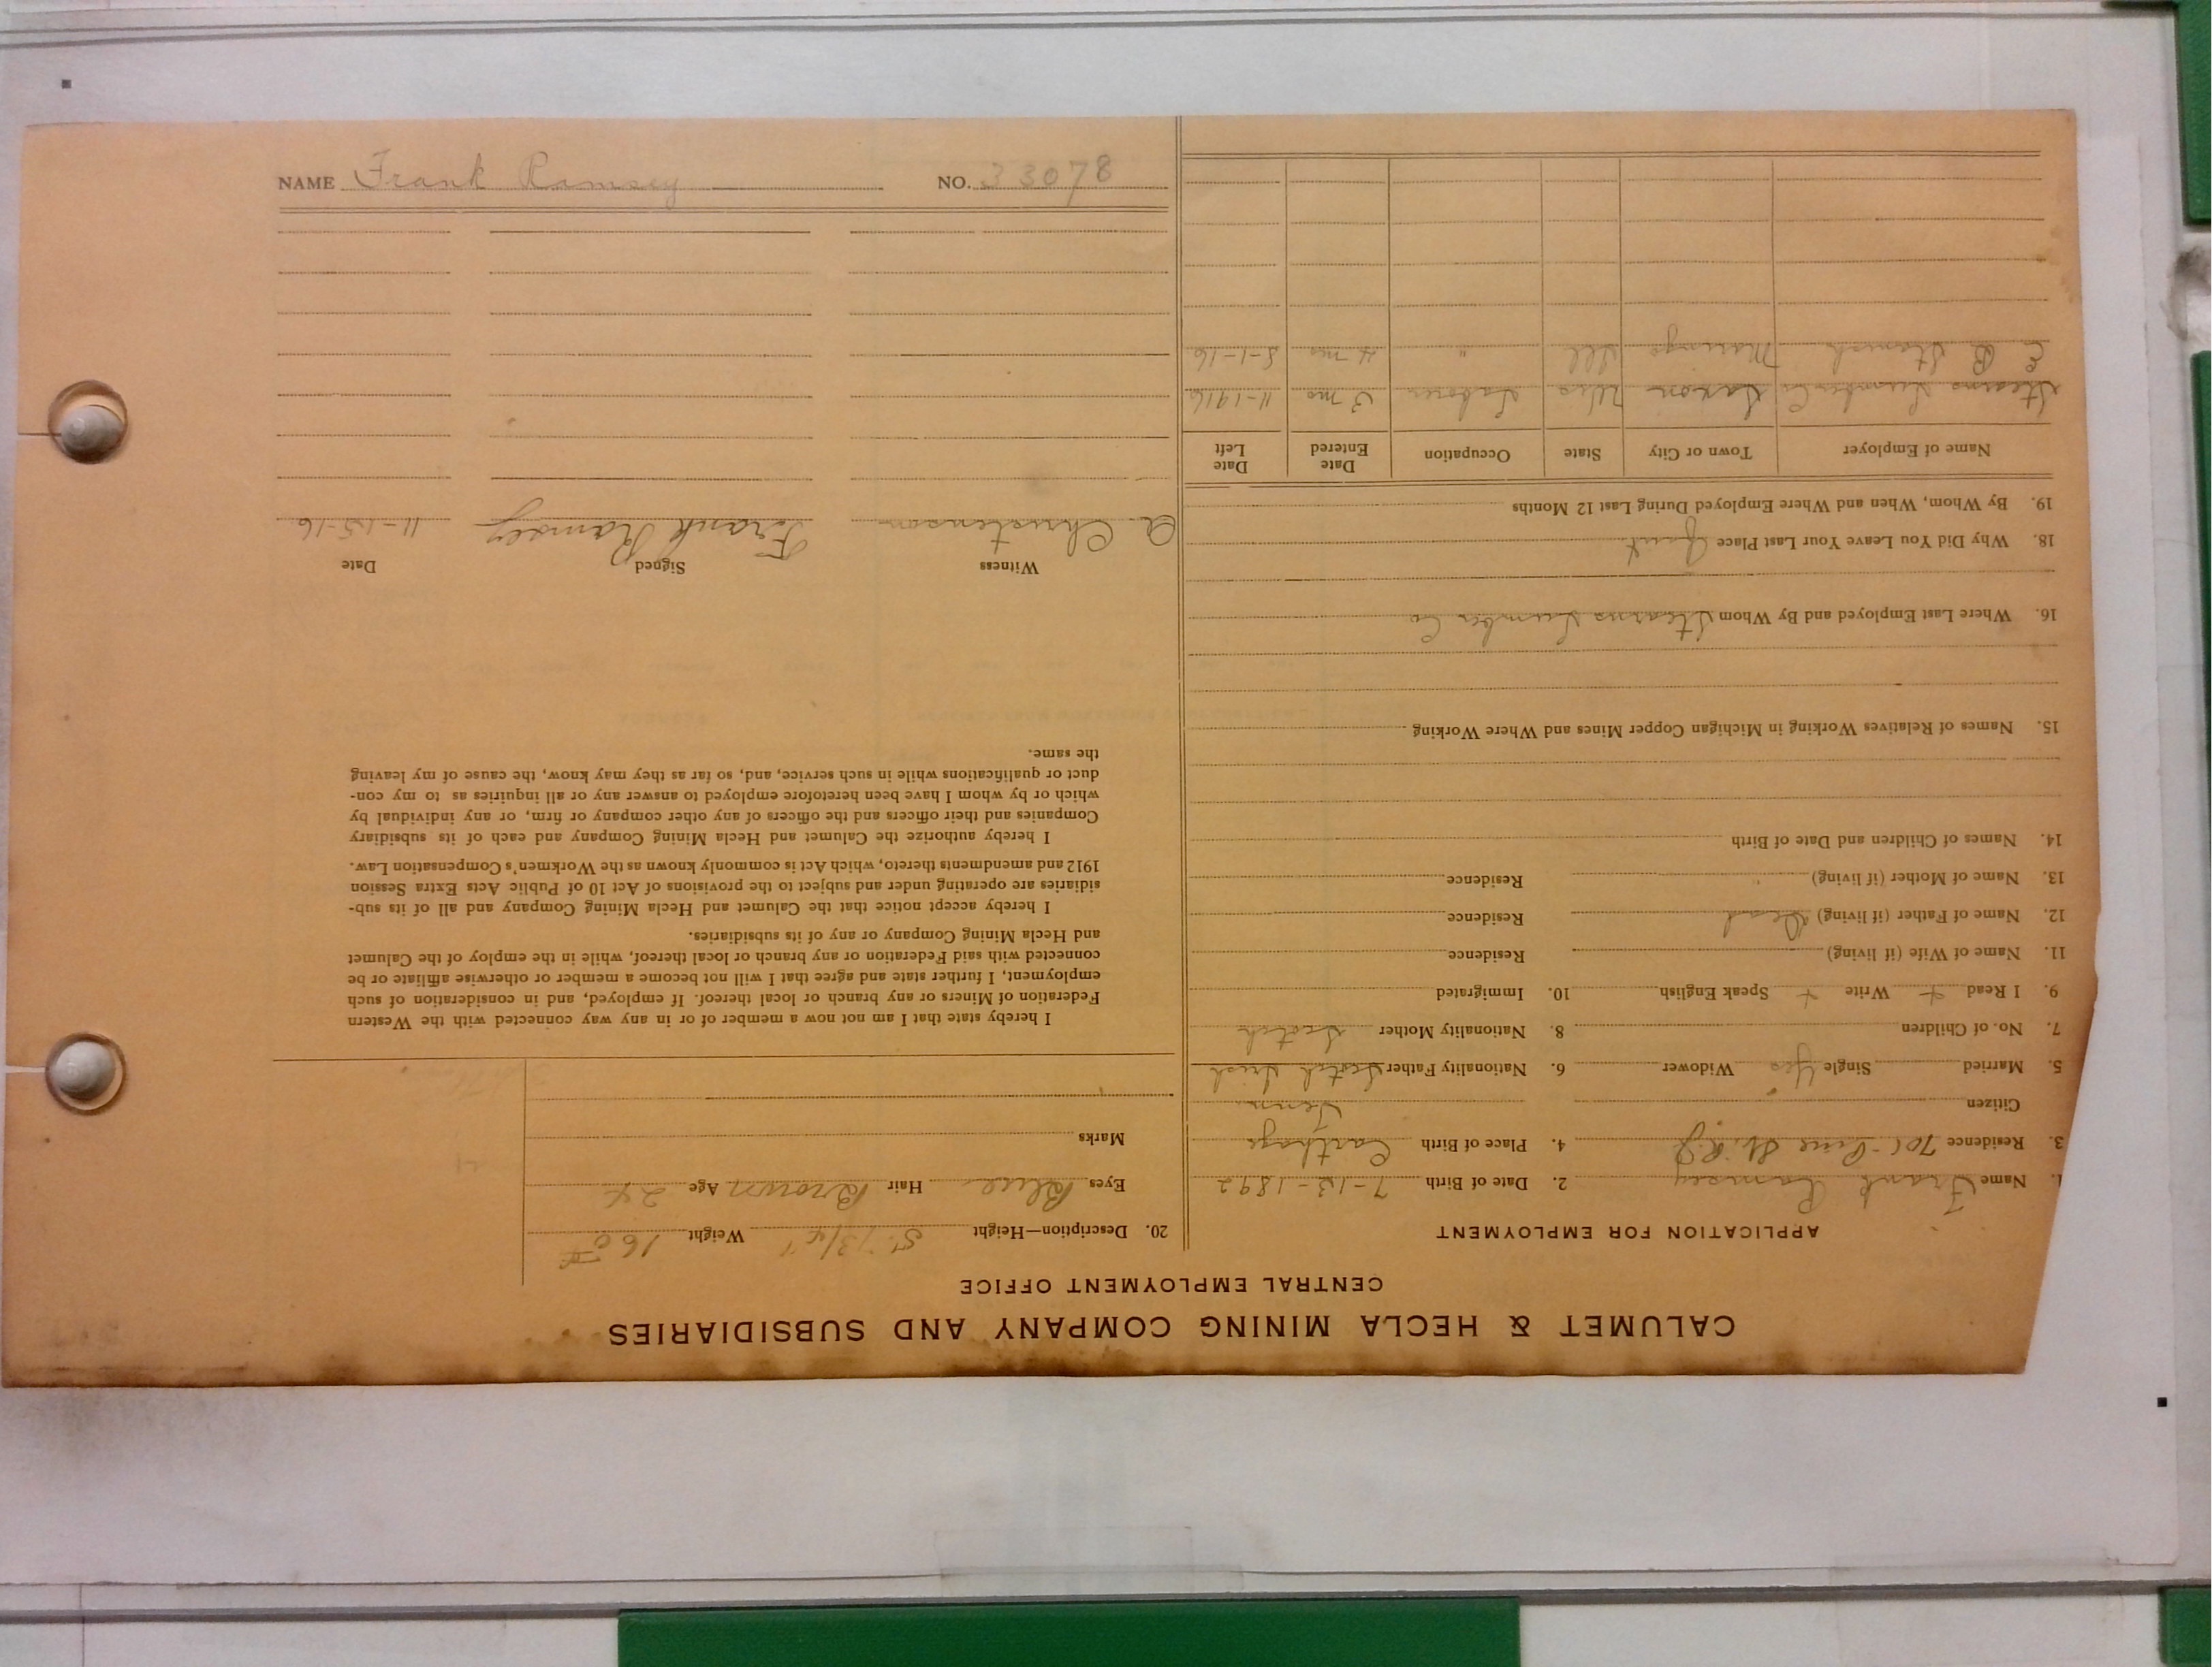 CALUMET & HECLA MINING COMPANY AND SUBSIDIARIES
CENTRAL EMPLOYMENT OFFICE
APPLICATION FOR EMPLOYMENT
1. Name Frank Ramsey 2. Date of Birth 7-13-1892
3. Residence 701 Pine St. 4. Place of Birth Carthage
Citizen Tenn
5. Married Single Yes Widower 6. Nationality Father Scotch Irish
7. No. of Children 8. Nationality Mother Scotch
9. I Read + Write + Speak English 10. Immigrated
11. Name of Wife (if living) Residence
12. Name of Father (if living) Dead Residence
13. Name of Mother (if living) " Residence
14. Names of Children and Date of Birth
15. Names of Relatives Working in Michigan Copper Mines and Where Working
16. Where Last Employed and By Whom Stearns Lumber Co
18. Why Did You Leave Your Last Place Quit
19. By Whom, When and Where Employed During Last 12 Months
Name of Employer Town or City State Occupation Date Entered Date Left
Stearns Lumber Co Saxon Wis Laborer 3 mo 11-1916
E B Ill " 4 mo 8-1-16
20. Description—Height 5' 7 3/4" Weight 160 #
Eyes Blue Hair Brown Age 24
Marks
I hereby state that I am not now a member of or in any way connected with the Western
Federation of Miners or any branch or local thereof. If employed, and in consideration of such
employment, I further state and agree that I will not become a member or otherwise affiliate or be
connected with said Federation or any branch or local thereof, while in the employ of the Calumet
and Hecla Mining Company or any of its subsidiaries.
I hereby accept notice that the Calumet and Hecla Mining Company and all of its sub-
sidiaries are operating under and subject to the provisions of Act 10 of Public Acts Extra Session
1912 and amendments thereto, which Act is commonly known as the Workmen's Compensation Law.
I hereby authorize the Calumet and Hecla Mining Company and each of its subsidiary
Companies and their officers and the officers of any other company or firm, or any individual by
which or by whom I have been heretofore employed to answer any or all inquiries as to my con-
duct or qualifications while in such service, and, so far as they may know, the cause of my leaving
the same.
Witness Signed Date
A Christenson Frank Ramsey 11-15-16
NAME Frank Ramsey NO. 33078